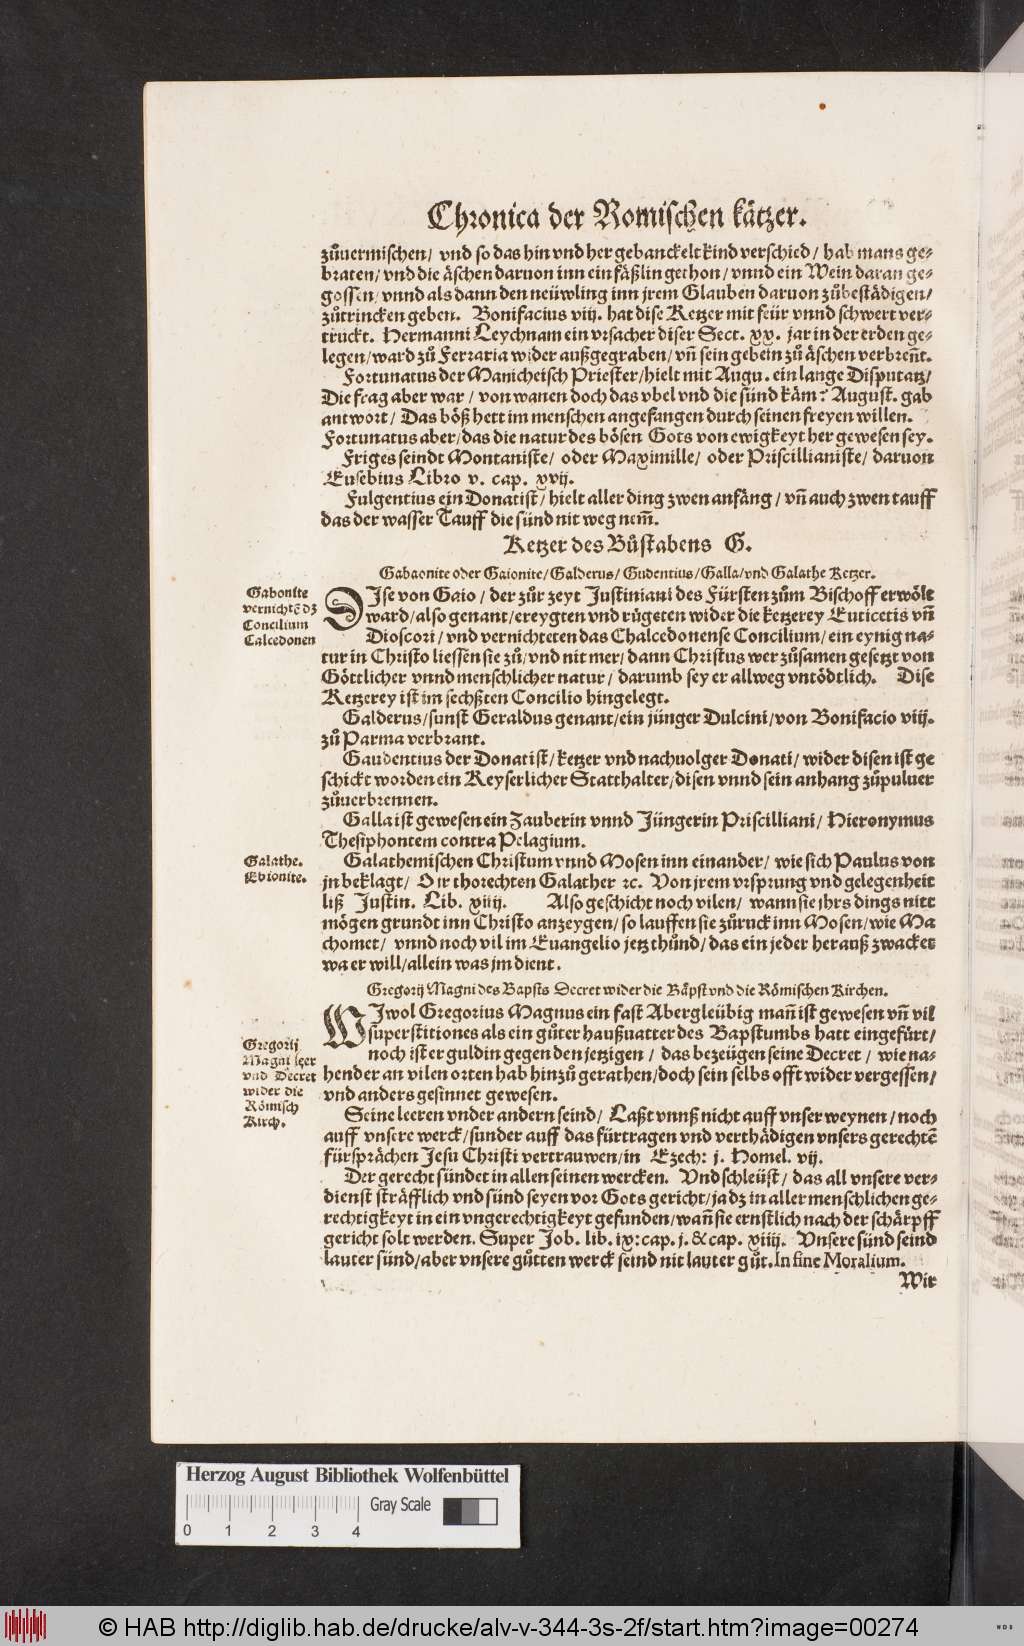 Chronica der Romischen kätzer.
zůuermischen/ vnd so das hin vnd her gebanckelt kind verschied/ hab mans ge-
braten/ vnd die äschen daruon inn ein fäßlin gethon/ vnnd ein Wein daran ge-
gossen/ vnnd als dann den neüwling inn jrem Glauben daruon zůbestädigen/
zůtrincken geben. Bonifacius viij. hat dise Ketzer mit feür vnnd schwert ver-
truckt. Hermanni Leychnam ein vrsacher diser Sect. xx. jar in der erden ge-
legen/ ward zů Ferraria wider außgegraben/ vñ sein gebein zů äschen verbreñt.
Fortunatus der Manicheisch Priester/ hielt mit Augu. ein lange Disputatz/
Die frag aber war/ von wanen doch das vbel vnd die sünd käm? August. gab
antwort/ Das böß hett im menschen angefangen durch seinen freyen willen.
Fortunatus aber/ das die natur des bösen Gots von ewigkeyt her gewesen sey.
Friges seindt Montaniste/ oder Maximille/ oder Priscillianiste/ daruon
Eusebius Libro v. cap. xvij.
Fulgentius ein Donatist/ hielt aller ding zwen anfäng/ vñ auch zwen tauff
das der wasser Tauff die sünd nit weg nem̃.
Ketzer des Bůstabens G.
Gabaonite oder Gaionite/ Galderus/ Gudentius/ Galla/ vnd Galathe Ketzer.
Gabonite
vernichtẽ dz
Concilium
Calcedonen
DIse von Gaio/ der zůr zeyt Justiniani des Fürsten zům Bischoff erwölt
ward/ also genant/ ereygten vnd rügeten wider die ketzerey Euticetis vñ
Dioscori/ vnd vernichteten das Chalcedonense Concilium/ ein eynig na-
tur in Christo liessen sie zů/ vnd nit mer/ dann Christus wer zůsamen gesetzt von
Göttlicher vnnd menschlicher natur/ darumb sey er allweg vntödtlich. Dise
Ketzerey ist im sechßten Concilio hingelegt.
Galderus/ sunst Geraldus genant/ ein jünger Dulcini/ von Bonifacio viij.
zů Parma verbrant.
Gaudentius der Donatist/ ketzer vnd nachuolger Donati/ wider disen ist ge
schickt worden ein Keyserlicher Statthalter/ disen vnnd sein anhang zůpuluer
zůuerbrennen.
Galla ist gewesen ein Zauberin vnnd Jüngerin Priscilliani/ Hieronymus
Thesiphontem contra Pelagium.
Galathe.
Ebionite.
Galathe mischen Christum vnnd Mosen inn einander/ wie sich Paulus von
jn beklagt/ O ir thorechten Galather ꝛc. Von jrem vrsprung vnd gelegenheit
liß Justin. Lib. xiiij. Also geschicht noch vilen/ wann sie jhrs dings nitt
mögen grundt inn Christo anzeygen/ so lauffen sie zůruck inn Mosen/ wie Ma
chomet/ vnnd noch vil im Euangelio jetz thůnd/ das ein jeder herauß zwacket
wa er will/ allein was jm dient.
Gregorij Magni des Bapsts Decret wider die Bäpst vnd die Römischen Kirchen.
Gregorij
Magni leer
vnd Decret
wider die
Römisch
Kirch.
WIwol Gregorius Magnus ein fast Abergleübig mañ ist gewesen vñ vil
superstitiones als ein gůter haußuatter des Bapstumbs hatt eingefürt/
noch ist er guldin gegen den jetzigen/ das bezeügen seine Decret/ wie na-
hender an vilen orten hab hinzů gerathen/ doch sein selbs offt wider vergessen/
vnd anders gesinnet gewesen.
Seine leeren vnder andern seind/ Laßt vnnß nicht auff vnser weynen/ noch
auff vnsere werck/ sunder auff das fürtragen vnd verthädigen vnsers gerechtẽ
fürsprächen Jesu Christi vertrauwen/ in Ezech: j. Homel. vij.
Der gerecht sündet in allen seinen wercken. Vnd schleüst/ das all vnsere ver-
dienst sträfflich vnd sünd seyen vor Gots gericht/ ja dz in aller menschlichen ge-
rechtigkeyt in ein vngerechtigkeyt gefunden/ wañ sie ernstlich nach der schärpff
gericht solt werden. Super Job. lib. ix: cap. j. & cap. xiiij. Vnsere sünd seind
lauter sünd/ aber vnsere gůtten werck seind nit lauter gůt. In fine Moralium.
Wir
Herzog August Bibliothek Wolfenbüttel
0 1 2 3 4 Gray Scale
© HAB http://diglib.hab.de/drucke/alv-v-344-3s-2f/start.htm?image=00274